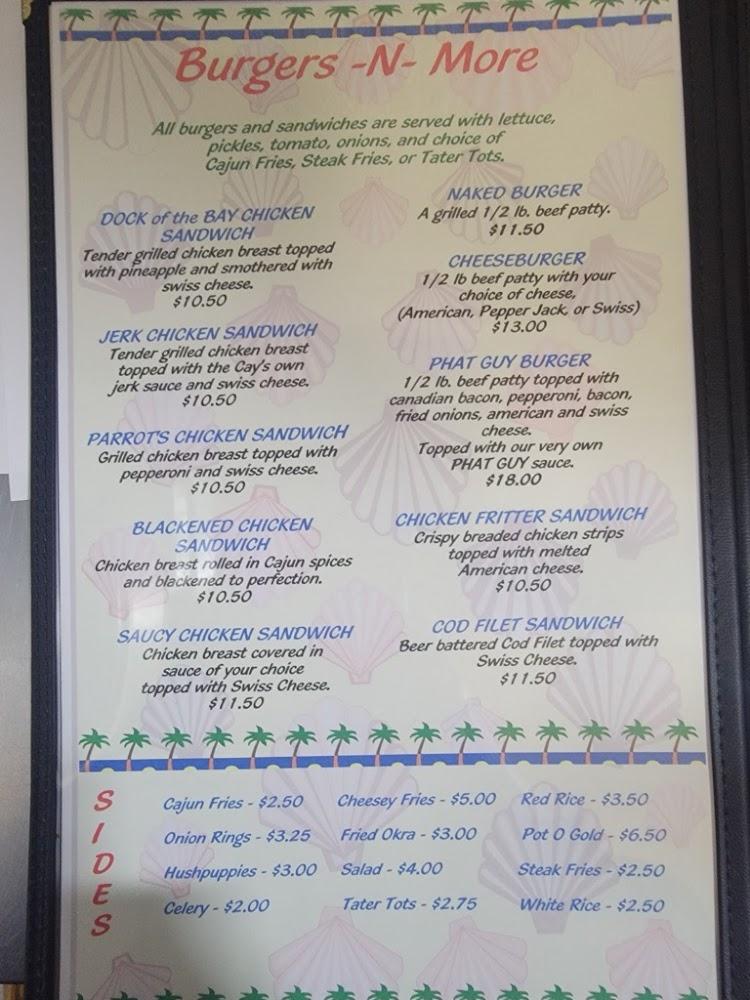 Burgers -N- More
All burgers and sandwiches are served with lettuce,
pickles, tomato, onions, and choice of
Cajun Fries, Steak Fries, or Tater Tots.
DOCK of the BAY CHICKEN
SANDWICH
Tender grilled chicken breast topped
with pineapple and smothered with
swiss cheese.
$10.50
JERK CHICKEN SANDWICH
Tender grilled chicken breast
topped with the Cay's own
jerk sauce and swiss cheese.
$10.50
PARROT'S CHICKEN SANDWICH
Grilled chicken breast topped with
pepperoni and swiss cheese.
$10.50
BLACKENED CHICKEN
SANDWICH
Chicken breast rolled in Cajun spices
and blackened to perfection.
$10.50
SAUCY CHICKEN SANDWICH
Chicken breast covered in
sauce of your choice
topped with Swiss Cheese.
$11.50
NAKED BURGER
A grilled 1/2 lb. beef patty.
$11.50
CHEESEBURGER
1/2 lb beef patty with your
choice of cheese,
(American, Pepper Jack, or Swiss)
$13.00
PHAT GUY BURGER
1/2 lb. beef patty topped with
canadian bacon, pepperoni, bacon,
fried onions, american and swiss
cheese.
Topped with our very own
PHAT GUY sauce.
$18.00
CHICKEN FRITTER SANDWICH
Crispy breaded chicken strips
topped with melted
American cheese.
$10.50
COD FILET SANDWICH
Beer battered Cod Filet topped with
Swiss Cheese.
$11.50
SIDES
Cajun Fries - $2.50
Onion Rings - $3.25
Hushpuppies - $3.00
Celery - $2.00
Cheesey Fries - $5.00
Fried Okra - $3.00
Salad - $4.00
Tater Tots - $2.75
Red Rice - $3.50
Pot O Gold - $6.50
Steak Fries - $2.50
White Rice - $2.50